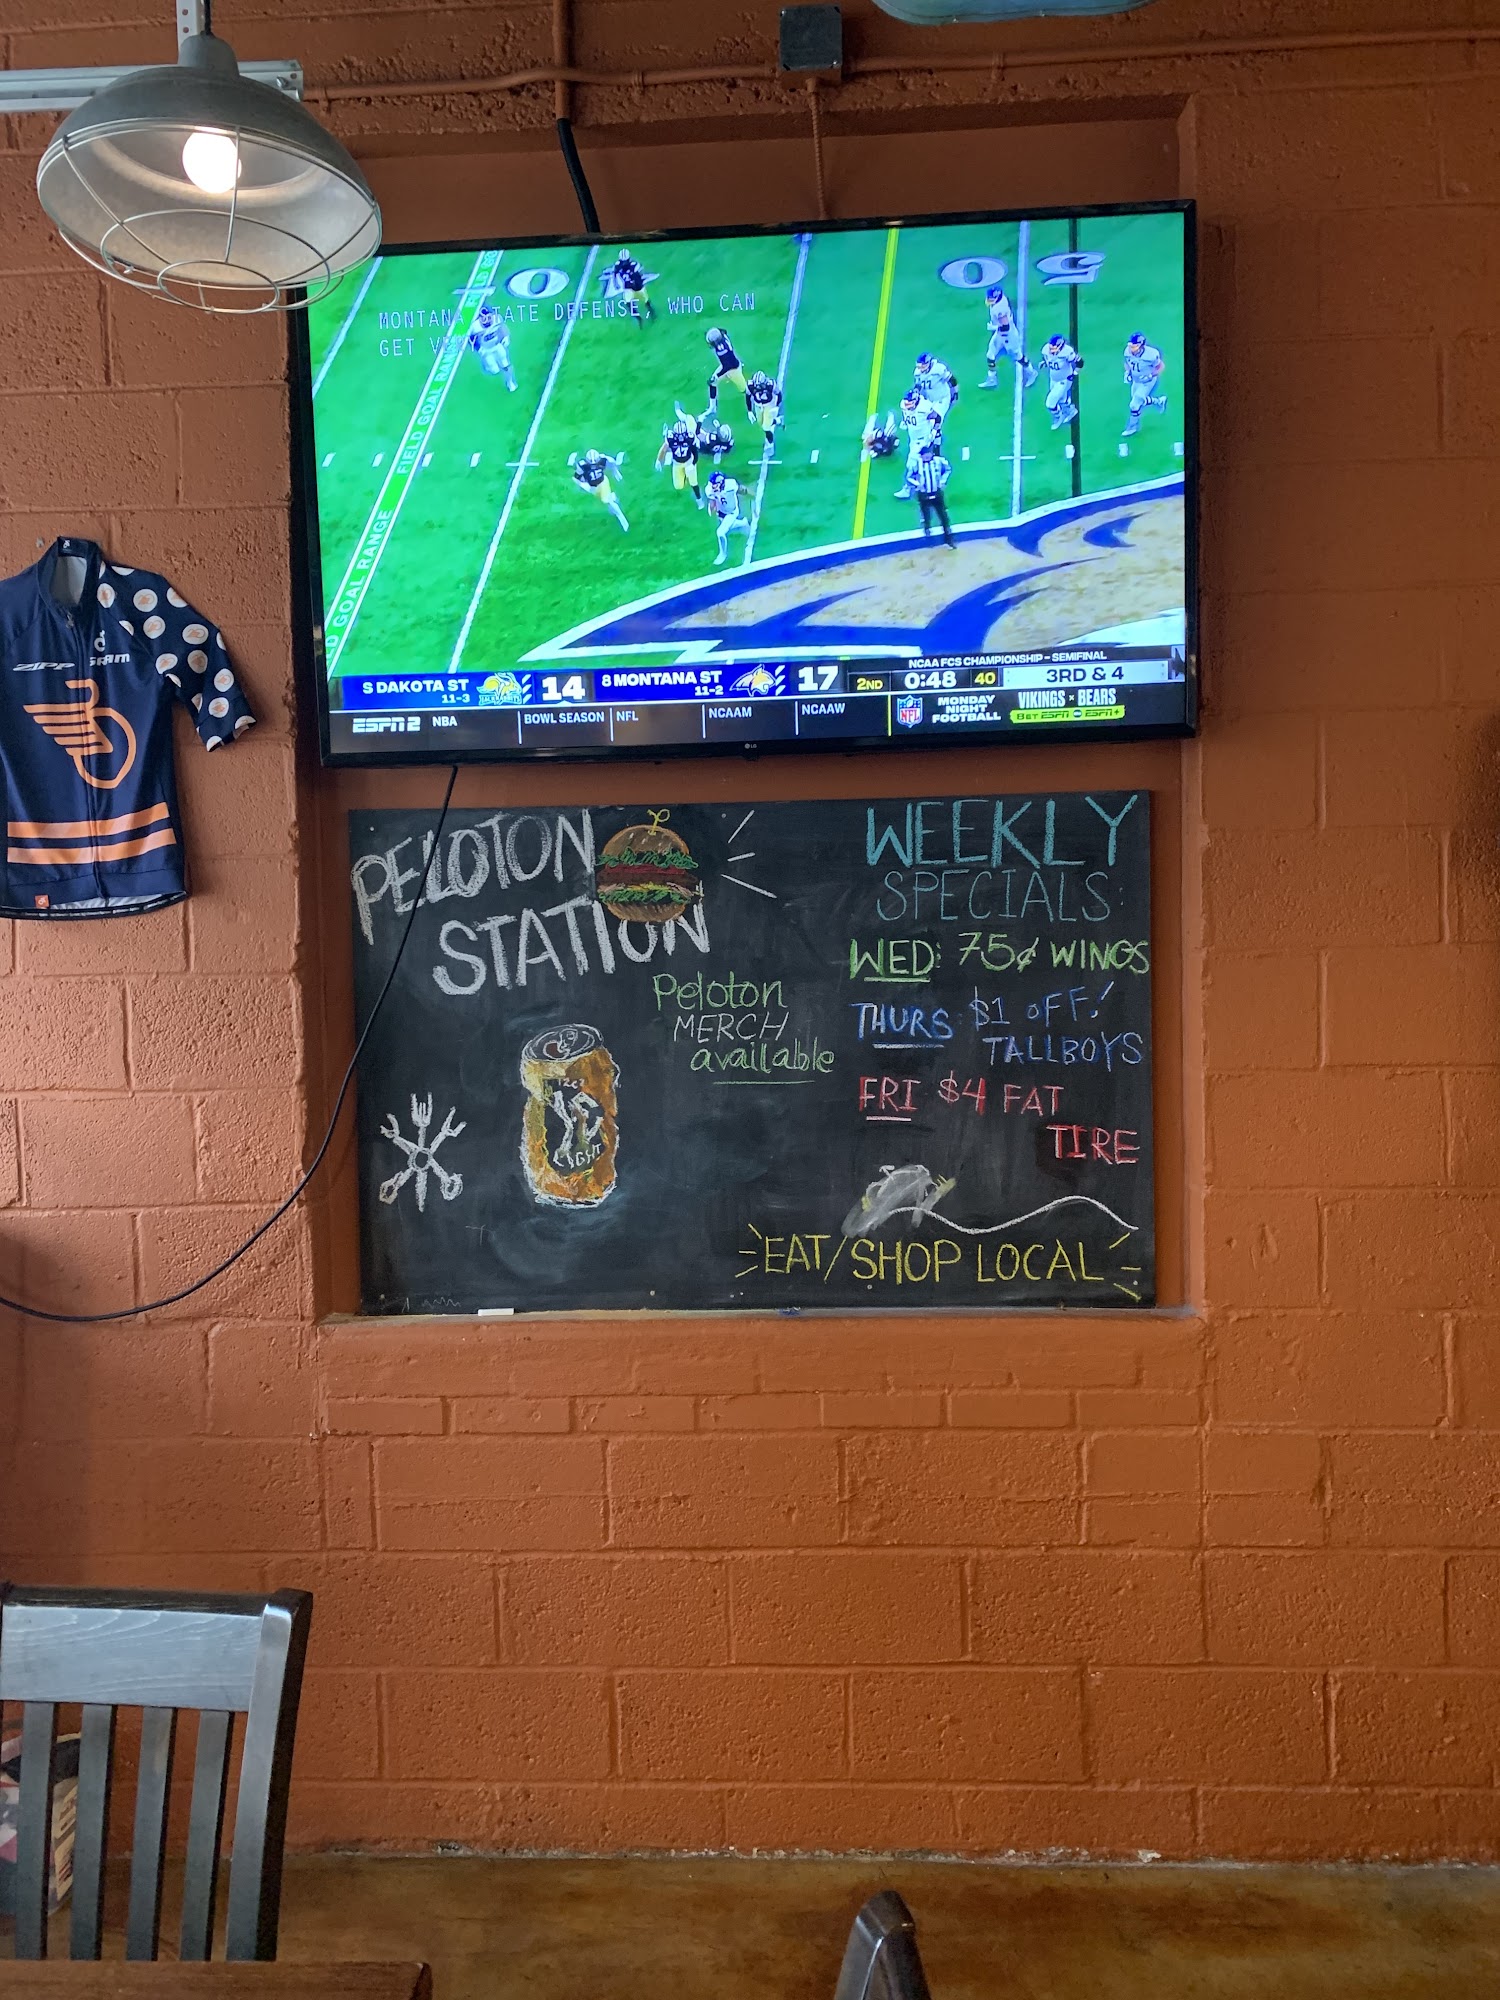 MONTANA STATE DEFENSE, WHO CAN
GET VERY
FIELD GOAL RANGE
GOAL RANGE
50
S DAKOTA ST 14
11-3
8 MONTANA ST 17
11-2
NCAA FCS CHAMPIONSHIP – SEMIFINAL
2ND 0:48 40 3RD & 4
ESPN2 NBA BOWL SEASON NFL NCAAM NCAAW
NFL
MONDAY
NIGHT
FOOTBALL
VIKINGS × BEARS
8 ET ESPN abc ESPN+
ZIPP SRAM
PELOTON
STATION
Peloton
MERCH
available
WEEKLY
SPECIALS:
WED: 75¢ WINGS
THURS: $1 OFF!
TALLBOYS
FRI $4 FAT
TIRE
EAT/SHOP LOCAL
LG